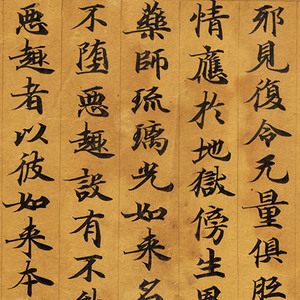 邪見復令无量俱胝
情應於地獄傍生鬼
藥師琉璃光如来名
不堕惡趣設有不能
惡趣者以彼如来本